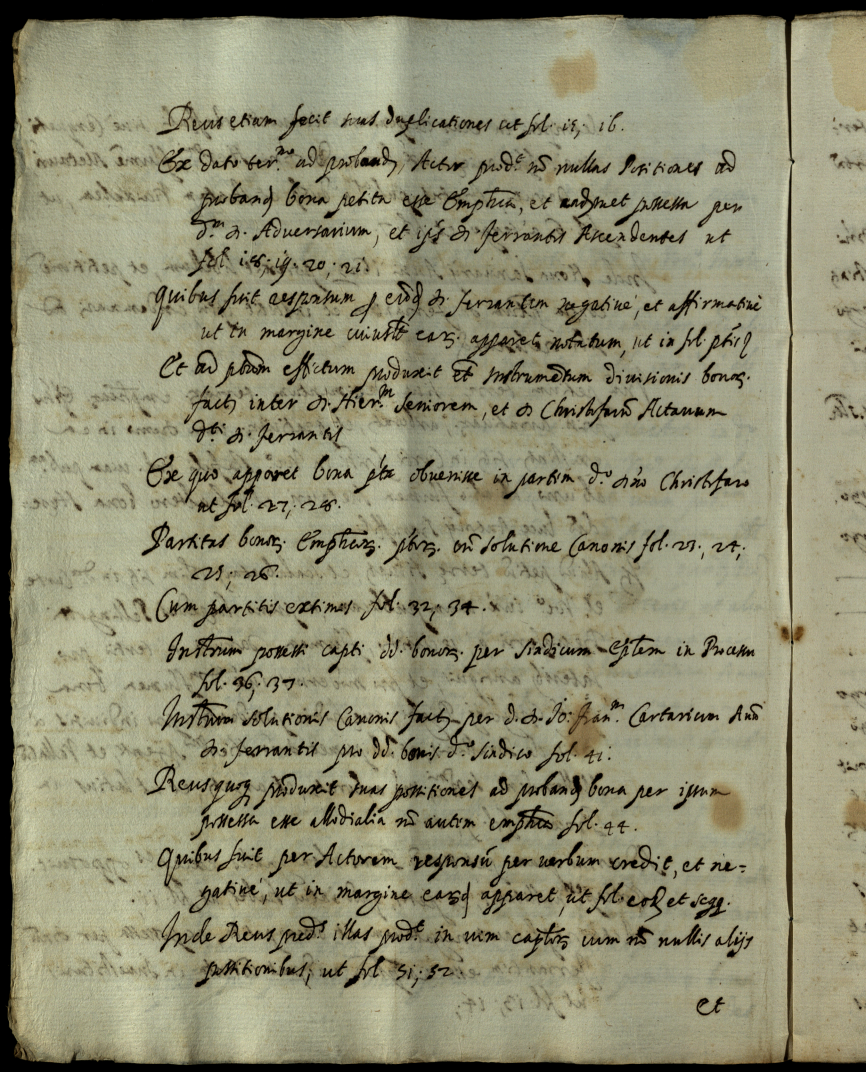 Reus etiam fecit suas duplicationes ut fol. 15; 16.
Ex dato ter.no ad proband, Actor prod.t nō nullas Positiones ad
proband bona petita esse Emph.ca, et eadmet possessa per
d.m D. Adversarium, et ejus D. Ferrantis Ascendentes ut
fol. 18; 19. 20; 21.
Quibus fuit responsum p eund D. Ferrantem negativè, et affirmativè
ut in margine cuiuslt ear. apparet notatum, ut in fol.
Et ad effectum produxit et Instrumentum divisionis bonor.
fact inter D. Hier.m Seniorem, et D. Christofarū Actavum
d.ti D. Ferrantis
Ex quo apparet bona p̄ta obvenisse in partem d.o D.no Christofaro
ut fol. 27; 28.
Partitas bonor. Emph.car. cū solutione Canonis fol. 23., 24;
25; 26.
Cum partitis extimes fol. 32; 34.
Instrum possessi capti dd. bonor. per Sindicum in Processu
fol. 36; 37.
Instrum solutionis Canonis fact per d. D. Jo: Fran.m Cartarium
D. Ferrantis pro dd. bonis d.o Sindico fol. 41.
Reus quoq produxit suas possitiones ad proband bona per ipsum
possessa esse allodialia nō autem emph.ca fol. 44.
Quibus fuit per Actorem responsū per verbum credit, et ne=
gativè, ut in margine apparet, ut fol. eod et seqq.
Inde Reus pred.s illas prod.t in vim cum nō nullis alijs
possitionibus, ut fol 51; 52
Et